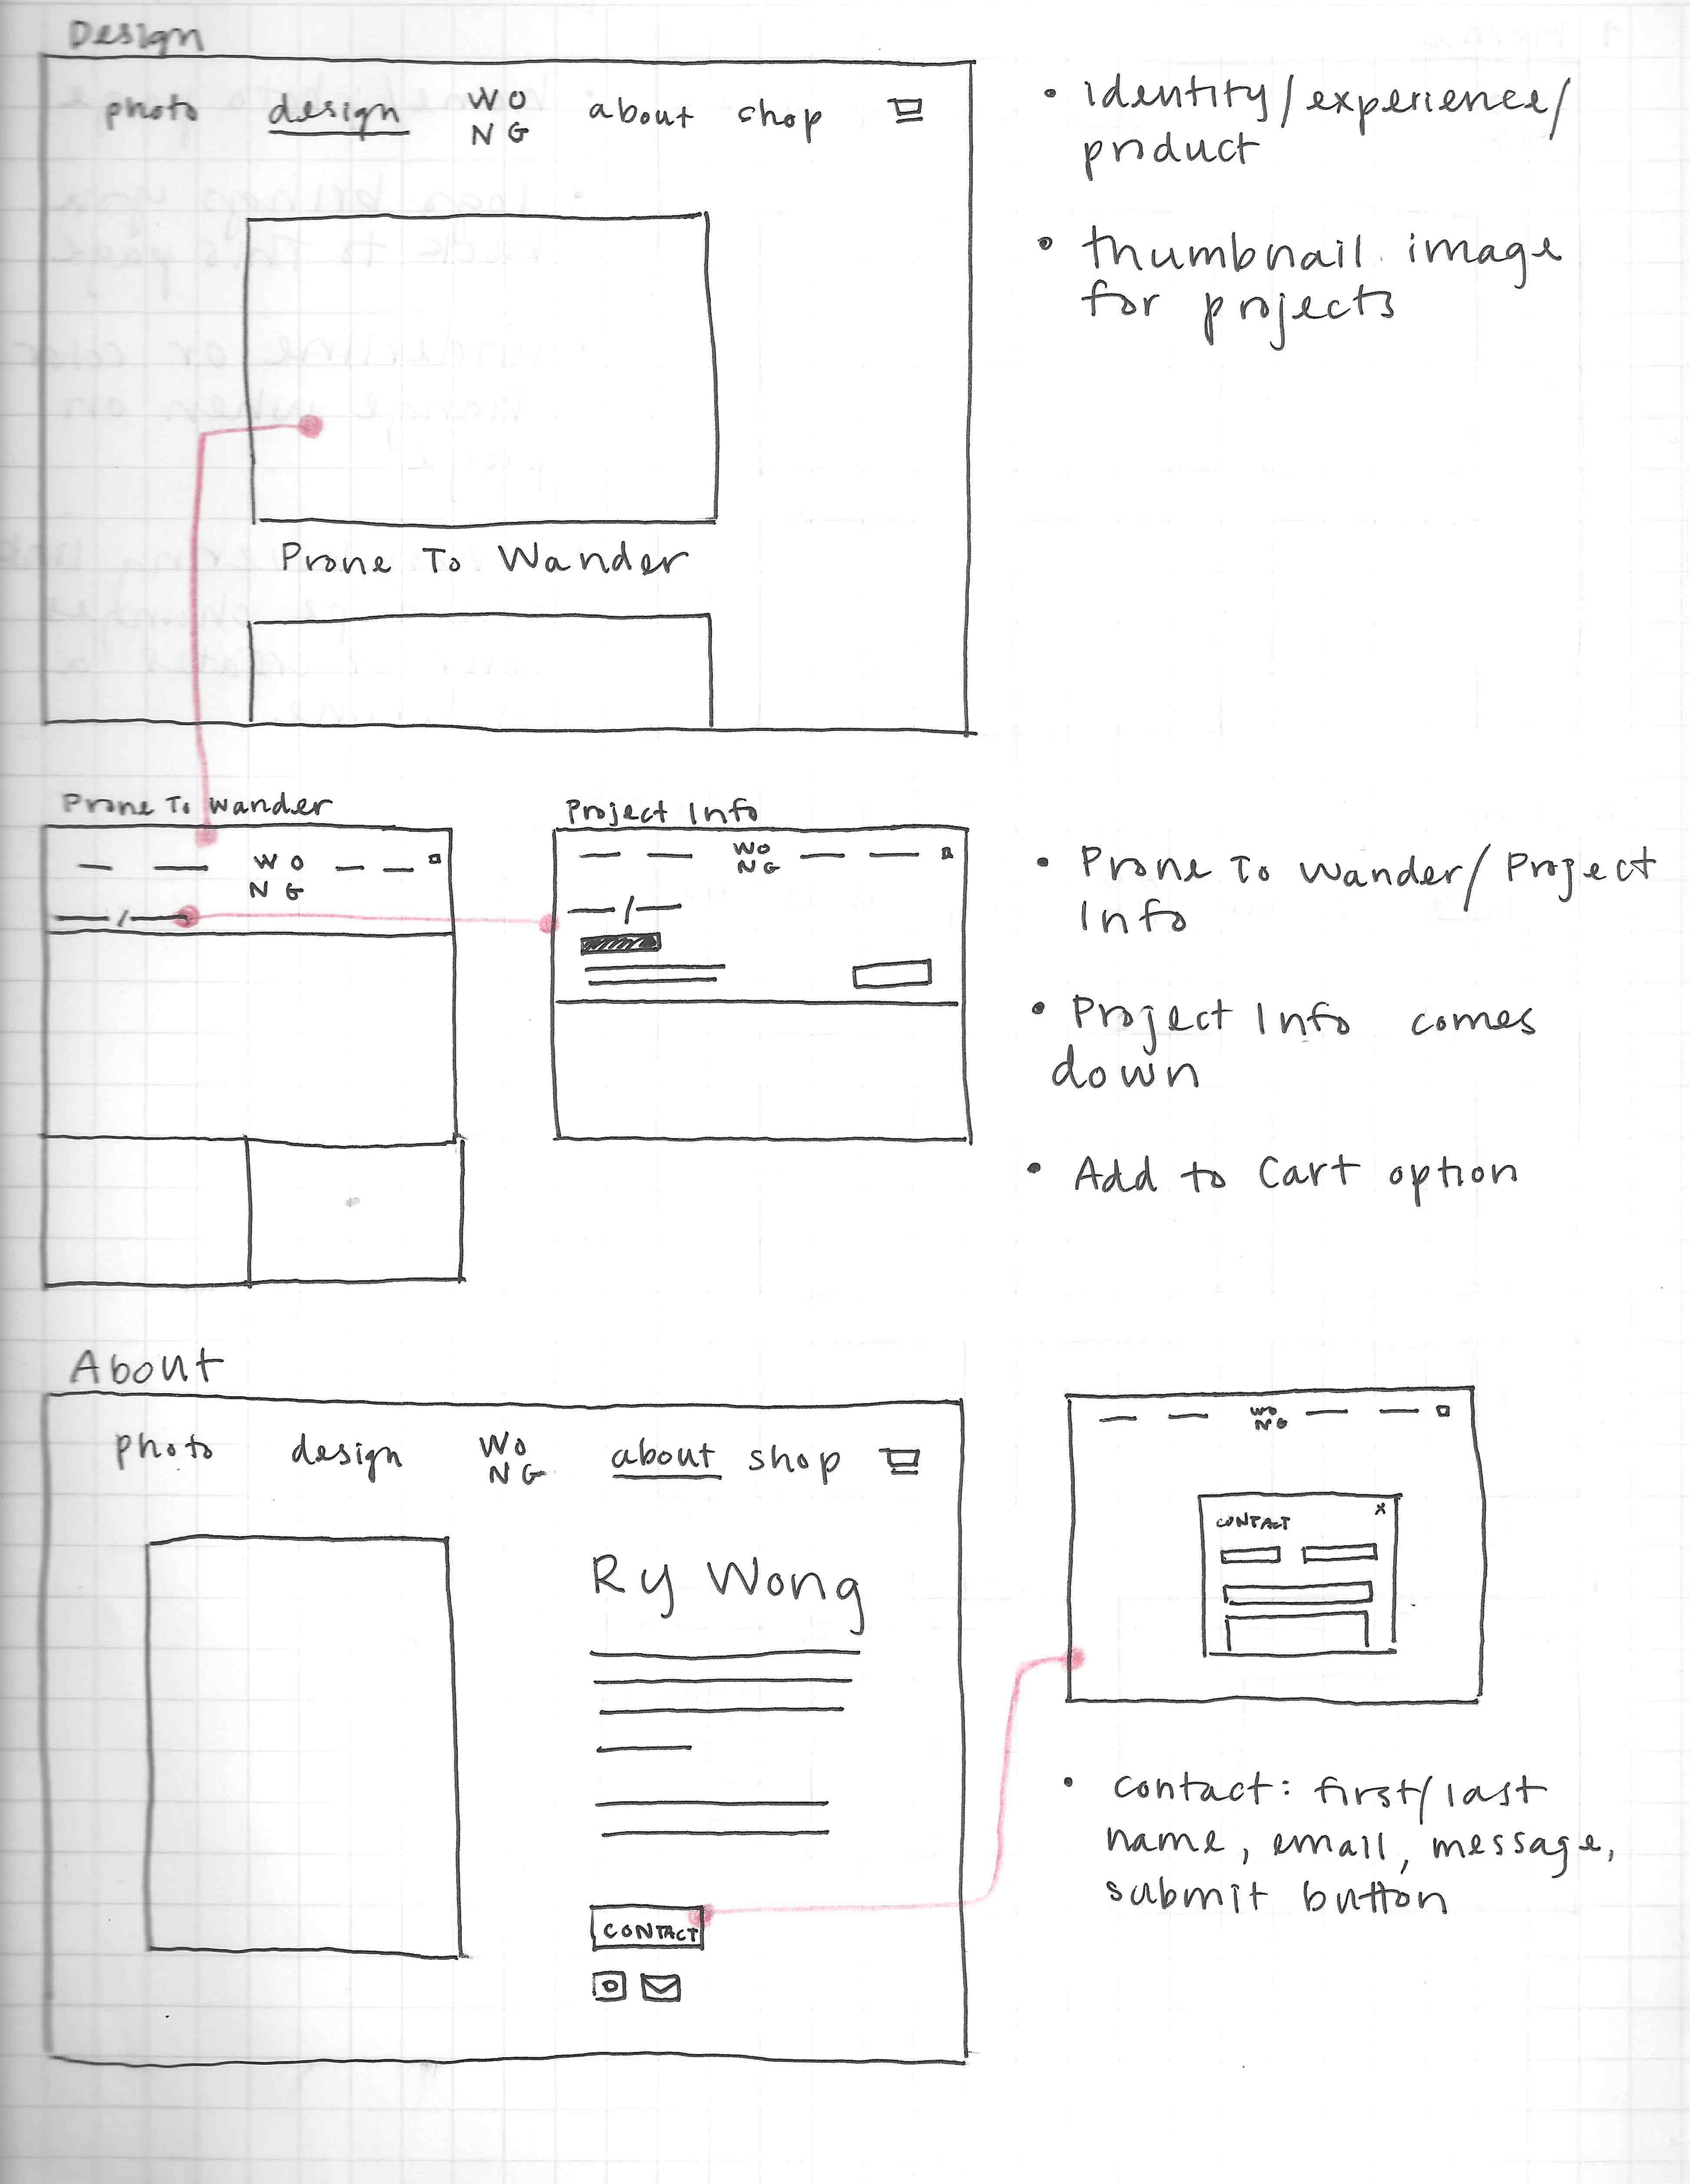 Design
photo design WO about shop
NG
• identity/experience/
product
• thumbnail image
for projects
Prone To Wander
Prone To Wander
WO
NG
Project Info
WO
NG
• Prone To Wander/Project
Info
• Project Info comes
down
• Add to Cart option
About
photo design WO about shop
NG
Ry Wong
CONTACT
WO
NG
CONTACT X
• contact: first/last
name, email, message,
submit button